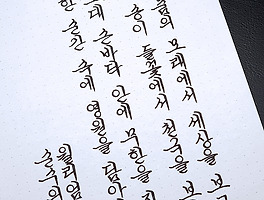 모래에서 세상을 보
송이 들꽃에서 천국을 보
대 손바닥 안에 무한을
한 순간 속에 영원을 담아
윌리엄
순수의